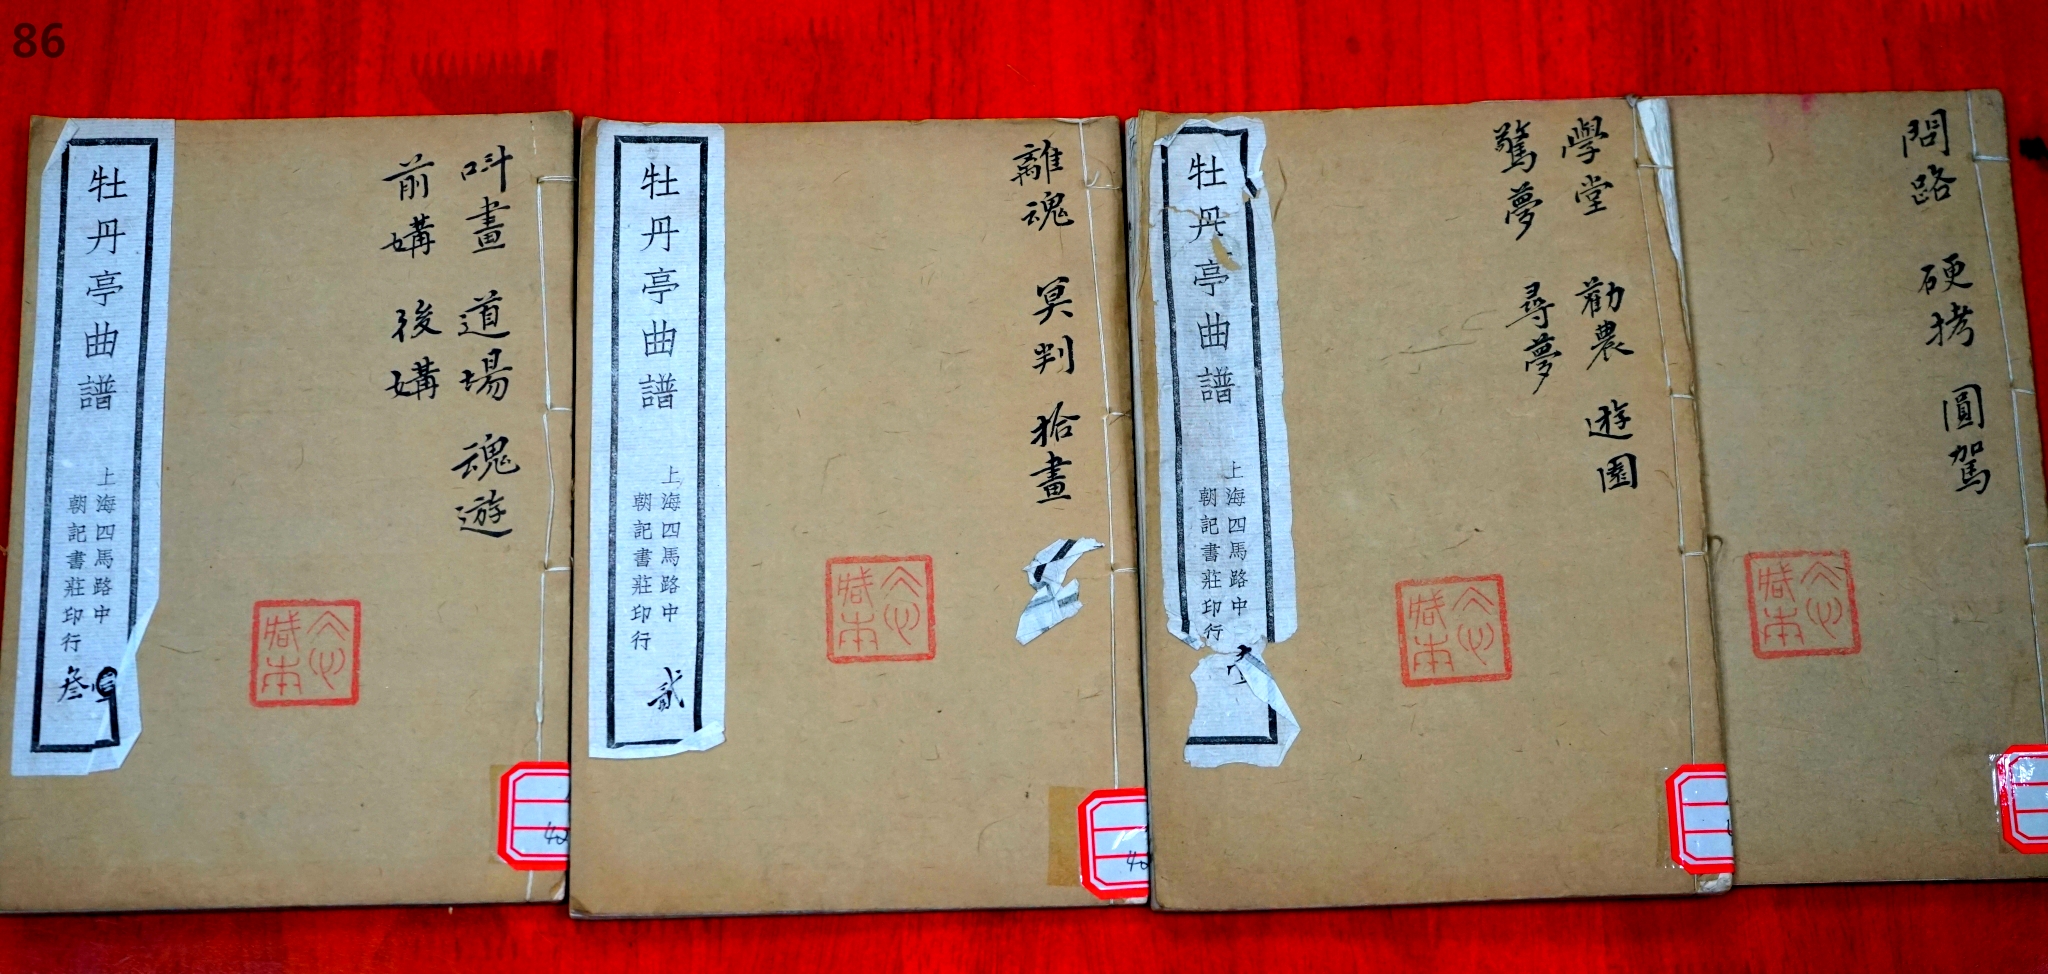 86
牡丹亭曲譜
上海四馬路中
朝記書莊印行
叁
叫畫 道場 魂遊
前媾 後媾
牡丹亭曲譜
上海四馬路中
朝記書莊印行
貳
離魂 冥判 拾畫
牡丹亭曲譜
上海四馬路中
朝記書莊印行
學堂 勸農 遊園
驚夢 尋夢
問路 硬拷 圓駕